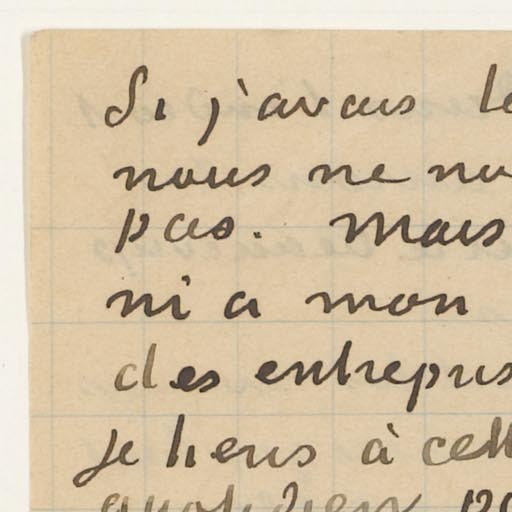 Si j'avais le
nous ne nou
pas. Mais
ni a mon
des entrepris
je tiens à cett
quotidien pa